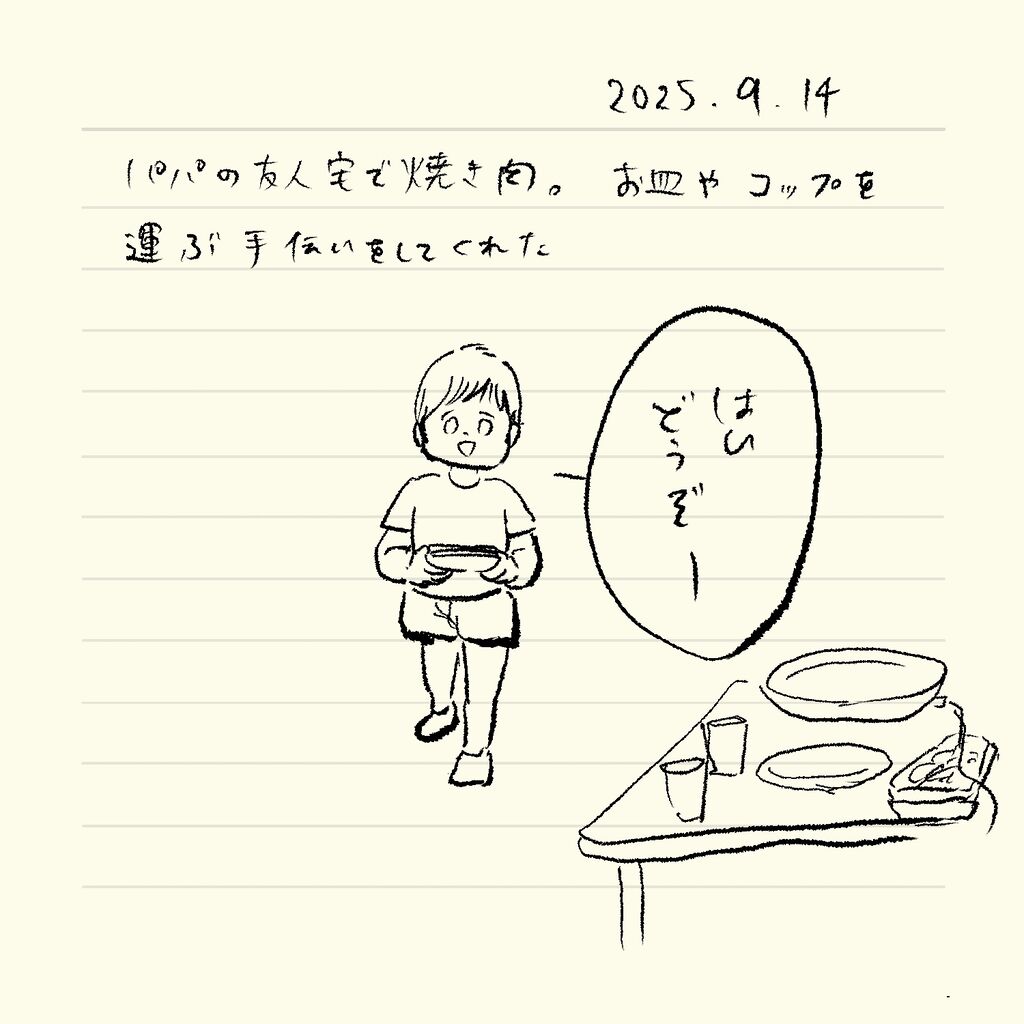 2025.9.14
パパの友人宅で焼き肉。 お皿や コップを
運ぶ手伝いをしてくれた
はい
どうぞー